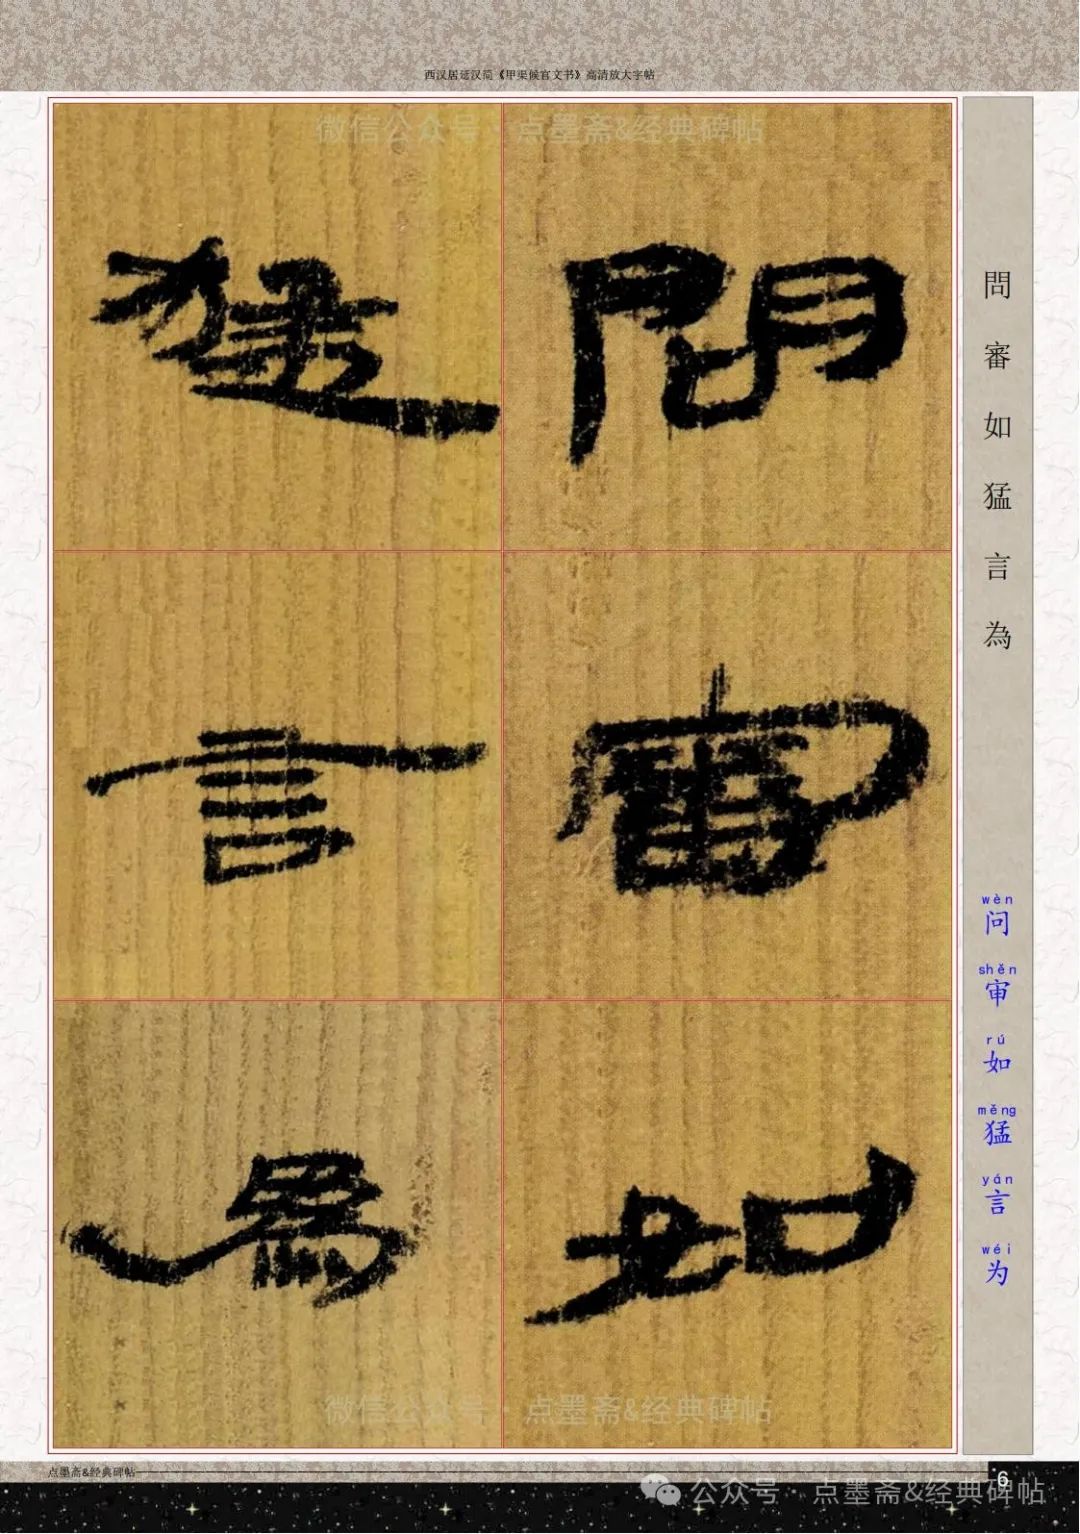 西汉居延汉简《甲渠候官文书》高清放大字帖
微信公众号·点墨斋&经典碑帖
問審如
猛言為
問審如猛言為
wèn
问
shěn
审
rú
如
měng
猛
yán
言
wéi
为
微信公众号·点墨斋&经典碑帖
点墨斋&经典碑帖
6
公众号·点墨斋&经典碑帖